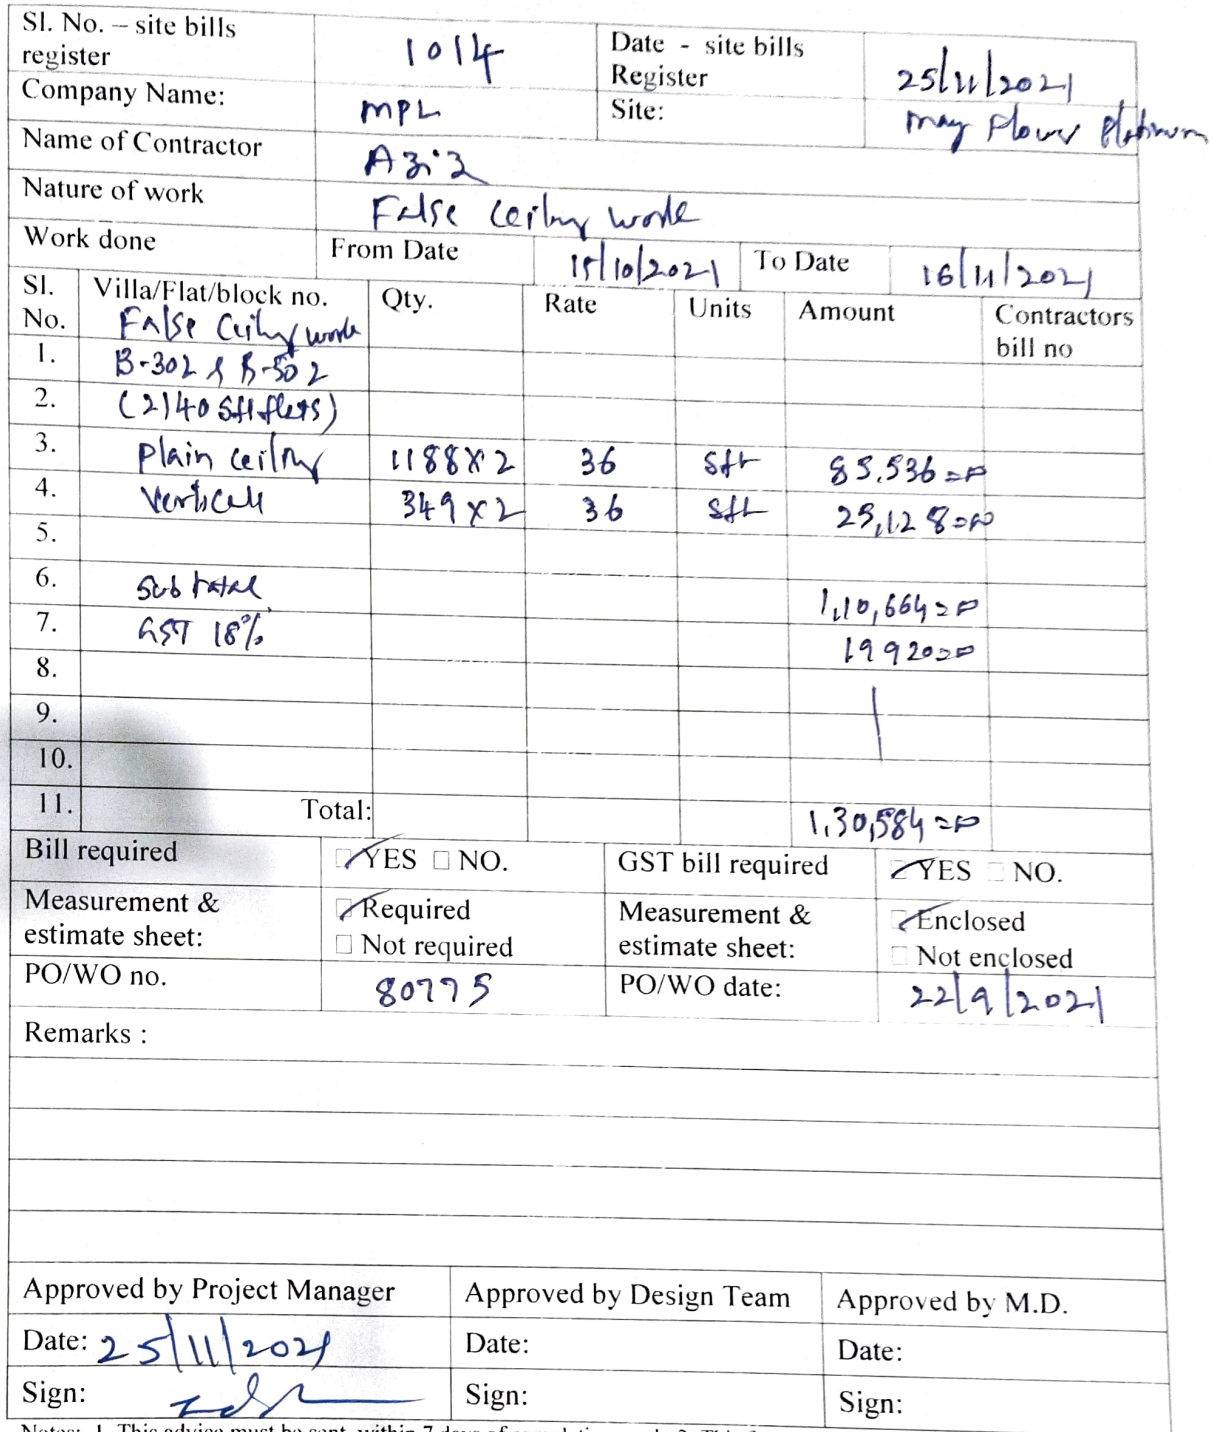 Sl. No. – site bills register 1014 Date - site bills Register 25/11/2021
Company Name: MPL Site: May Flower Platinum
Name of Contractor Aziz
Nature of work False Ceiling work
Work done From Date 15/10/2021 To Date 16/11/2021
Sl. No. Villa/Flat/block no. Qty. Rate Units Amount Contractors bill no
False Ceiling work
1. B-302 & B-502
2. (2140 Sft flats)
3. Plain ceiling 1188x2 36 Sft 85,536=00
4. Vertical 349x2 36 Sft 25,128=00
5.
6. Sub total 1,10,664=00
7. GST 18% 19920=00
8.
9.
10.
11. Total: 1,30,584=00
Bill required YES NO. GST bill required YES NO.
Measurement & estimate sheet: Required Not required Measurement & estimate sheet: Enclosed Not enclosed
PO/WO no. 80775 PO/WO date: 22/9/2021
Remarks :
Approved by Project Manager Approved by Design Team Approved by M.D.
Date: 25/11/2021 Date: Date:
Sign: Sign: Sign: